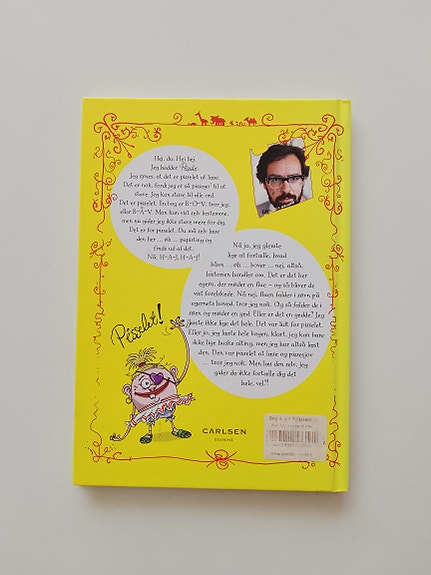 Hej, du. Hej hej.
Jeg hedder
Jeg synes, at det er pisselet at læse.
Det er nok, fordi jeg er så pissegod til at
stave. Jeg kan stave til alle ord.
Det er pisselet. En bog er B-O-V, tror jeg,
eller B-Å-V. Man kan vist selv bestemme,
men nu gider jeg ikke stave mere for dig.
Det er for pisselet. Du må selv læse
den her ... øh ... papirting og
finde ud af det.
Nå, H-A-J, H-A-J!
Nå jo, jeg glemte
lige at fortælle, hvad
boven ... øh ... bover ... nej, altså,
historien handler om. Det er det her
egern, der møder en flue – og så bliver de
vist forelskede. Nå nej, fluen falder i søvn på
egernets hoved, tror jeg nok. Og så falder de i
søen og møder en gød. Eller er det en gedde? Jeg
læste ikke lige det hele. Det var lidt for pisselet.
Eller jo, jeg læste hele bogen, klart, jeg kan bare
ikke lige huske alting, men jeg har altså læst
den. Den var pisselet at læse og pissesjov
... tror jeg nok. Men læs den selv, jeg
gider da ikke fortælle dig det
hele, vel?!
Pisselet!
CARLSEN